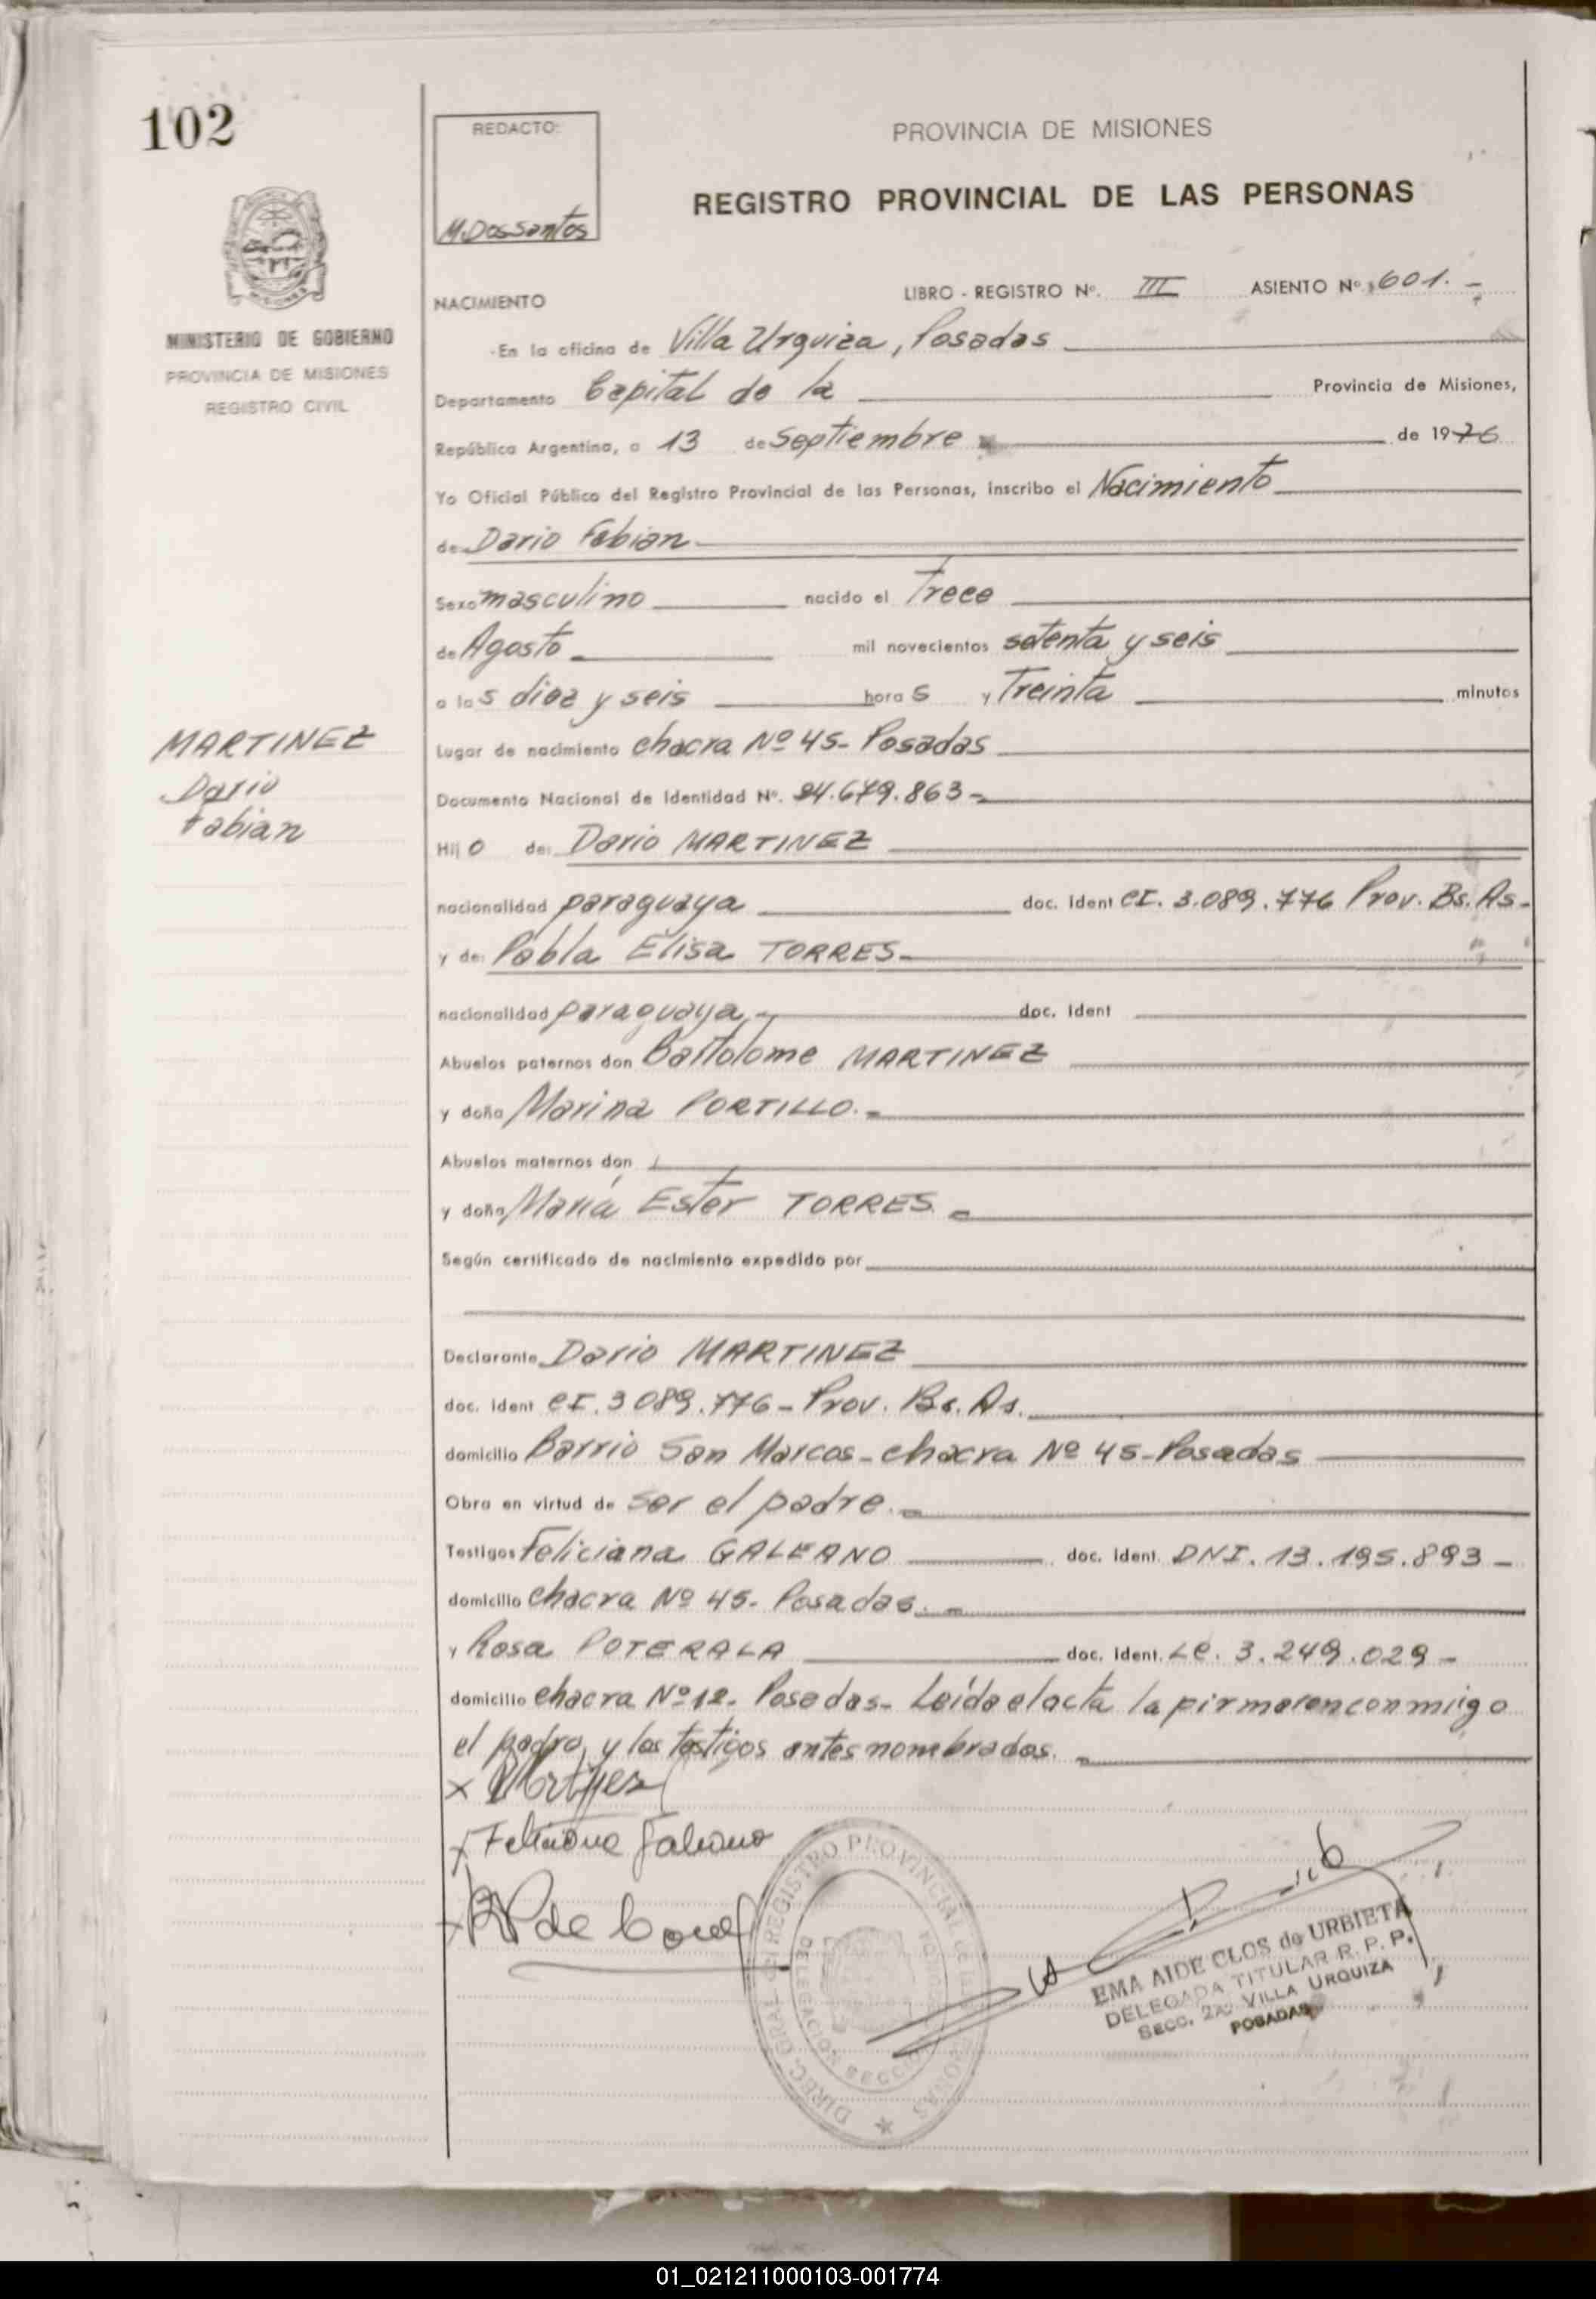 102
REDACTO:
M. Dos Santos
PROVINCIA DE MISIONES
REGISTRO PROVINCIAL DE LAS PERSONAS
MINISTERIO DE GOBIERNO
PROVINCIA DE MISIONES
REGISTRO CIVIL
NACIMIENTO
LIBRO - REGISTRO Nº. III ASIENTO Nº 601.-
En la oficina de Villa Urquiza, Posadas
Departamento Capital de la Provincia de Misiones,
República Argentina, a 13 de Septiembre de 1976
Yo Oficial Público del Registro Provincial de las Personas, inscribo el Nacimiento
de Dario Fabian
Sexo masculino nacido el Trece
de Agosto mil novecientos setenta y seis
a las diez y seis horas y Treinta minutos
MARTINEZ
Dario
Fabian
Lugar de nacimiento chacra Nº 45- Posadas
Documento Nacional de Identidad Nº. 24.679.863-
Hijo de: Dario MARTINEZ
nacionalidad paraguaya doc. ident CI. 3.089.776 Prov. Bs. As-
y de: Pabla Elisa TORRES-
nacionalidad paraguaya doc. ident
Abuelos paternos don Bartolome MARTINEZ
y doña Marina PORTILLO.-
Abuelos maternos don
y doña Maria Ester TORRES.-
Según certificado de nacimiento expedido por
Declarante Dario MARTINEZ
doc. ident CI. 3 089.776- Prov. Bs. As.
domicilio Barrio San Marcos- chacra Nº 45- Posadas
Obra en virtud de ser el padre.-
Testigos Feliciana GALEANO doc. ident. DNI. 13.195.893-
domicilio chacra Nº 45- Posadas.-
y Rosa POTERALA doc. ident. LC. 3.249.029-
domicilio chacra Nº 12- Posadas- Leída el acta la firmaron conmigo
el padre y los testigos antes nombrados.-
x
x Feliciana Galeano
x
DIREC. GRAL. del REGISTRO PROVINCIAL de las PERSONAS
EMA AIDE CLOS de URBIETA
DELEGADA TITULAR R. P. P.
SECC. 2a. VILLA URQUIZA
POSADAS
01_021211000103-001774